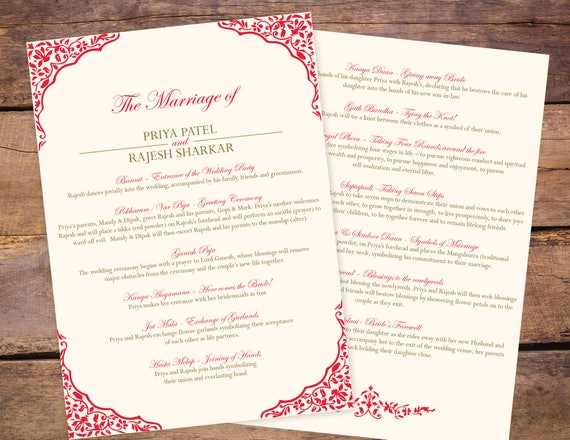 The Marriage of
PRIYA PATEL
and
RAJESH SHARKAR
Baraat - Entrance of the Wedding Party
Rajesh dances jovially into the wedding, accompanied by his family, friends and groomsmen.
Pokhvanu / Var Puja - Greeting Ceremony
Priya's parents, Mandy & Dipak, greet Rajesh and his parents, Gopi & Mark. Priya's mother welcomes
Rajesh and will place a tikka (red powder) on Rajesh's forehead and will perform an aarthi (prayer) to
ward off evil. Mandy & Dipak will then escort Rajesh and his parents to the mandap (alter).
Ganesh Puja
The wedding ceremony begins with a prayer to Lord Ganesh, whose blessings will remove
major obstacles from the ceremony and the couple's new life together.
Kanya Aagamana - Here comes the Bride!
Priya makes her entrance with her bridesmaids in tow.
Jai Mala - Exchange of Garlands
Priya and Rajesh exchange flower garlands symbolizing their acceptance
of each other as life partners.
Hasta Melap - Joining of Hands
Priya and Rajesh join hands symbolizing
their union and everlasting bond.
Kanya Daan - Giving away Bride
hands of his daughter Priya with Rajesh's, declaring that he bestows the care of his
daughter into the hands of his new son-in-law.
Gath Bandha - Tying the Knot!
Rajesh will tie a knot between their clothes as a symbol of their union.
Phera - Taking Four Rounds around the fire
fire symbolizing four stages in life – to pursue righteous conduct and spiritual
wealth and prosperity, to pursue happiness and enjoyment, to pursue
self-realization and eternal bliss.
Saptapadi - Taking Seven Steps
to take seven steps to demonstrate their union and vows to each other
each other, to grow together in strength, to live prosperously, to share joys
their children, to be together forever and to remain lifelong friends.
& Sindoor Daan - Symbols of Marriage
powder, on Priya's forehead and places the Mangalsutra (traditional
and her neck, symbolizing his commitment to their marriage.
- Blessings to the newlyweds
the newlyweds. Priya and Rajesh will then seek blessings
friends will bestow blessings by showering flower petals on to the
couple as they exit.
- Bride's Farewell
to their daughter as she rides away with her new Husband and
accompany her to the exit of the wedding venue, her parents
back holding their daughter close.